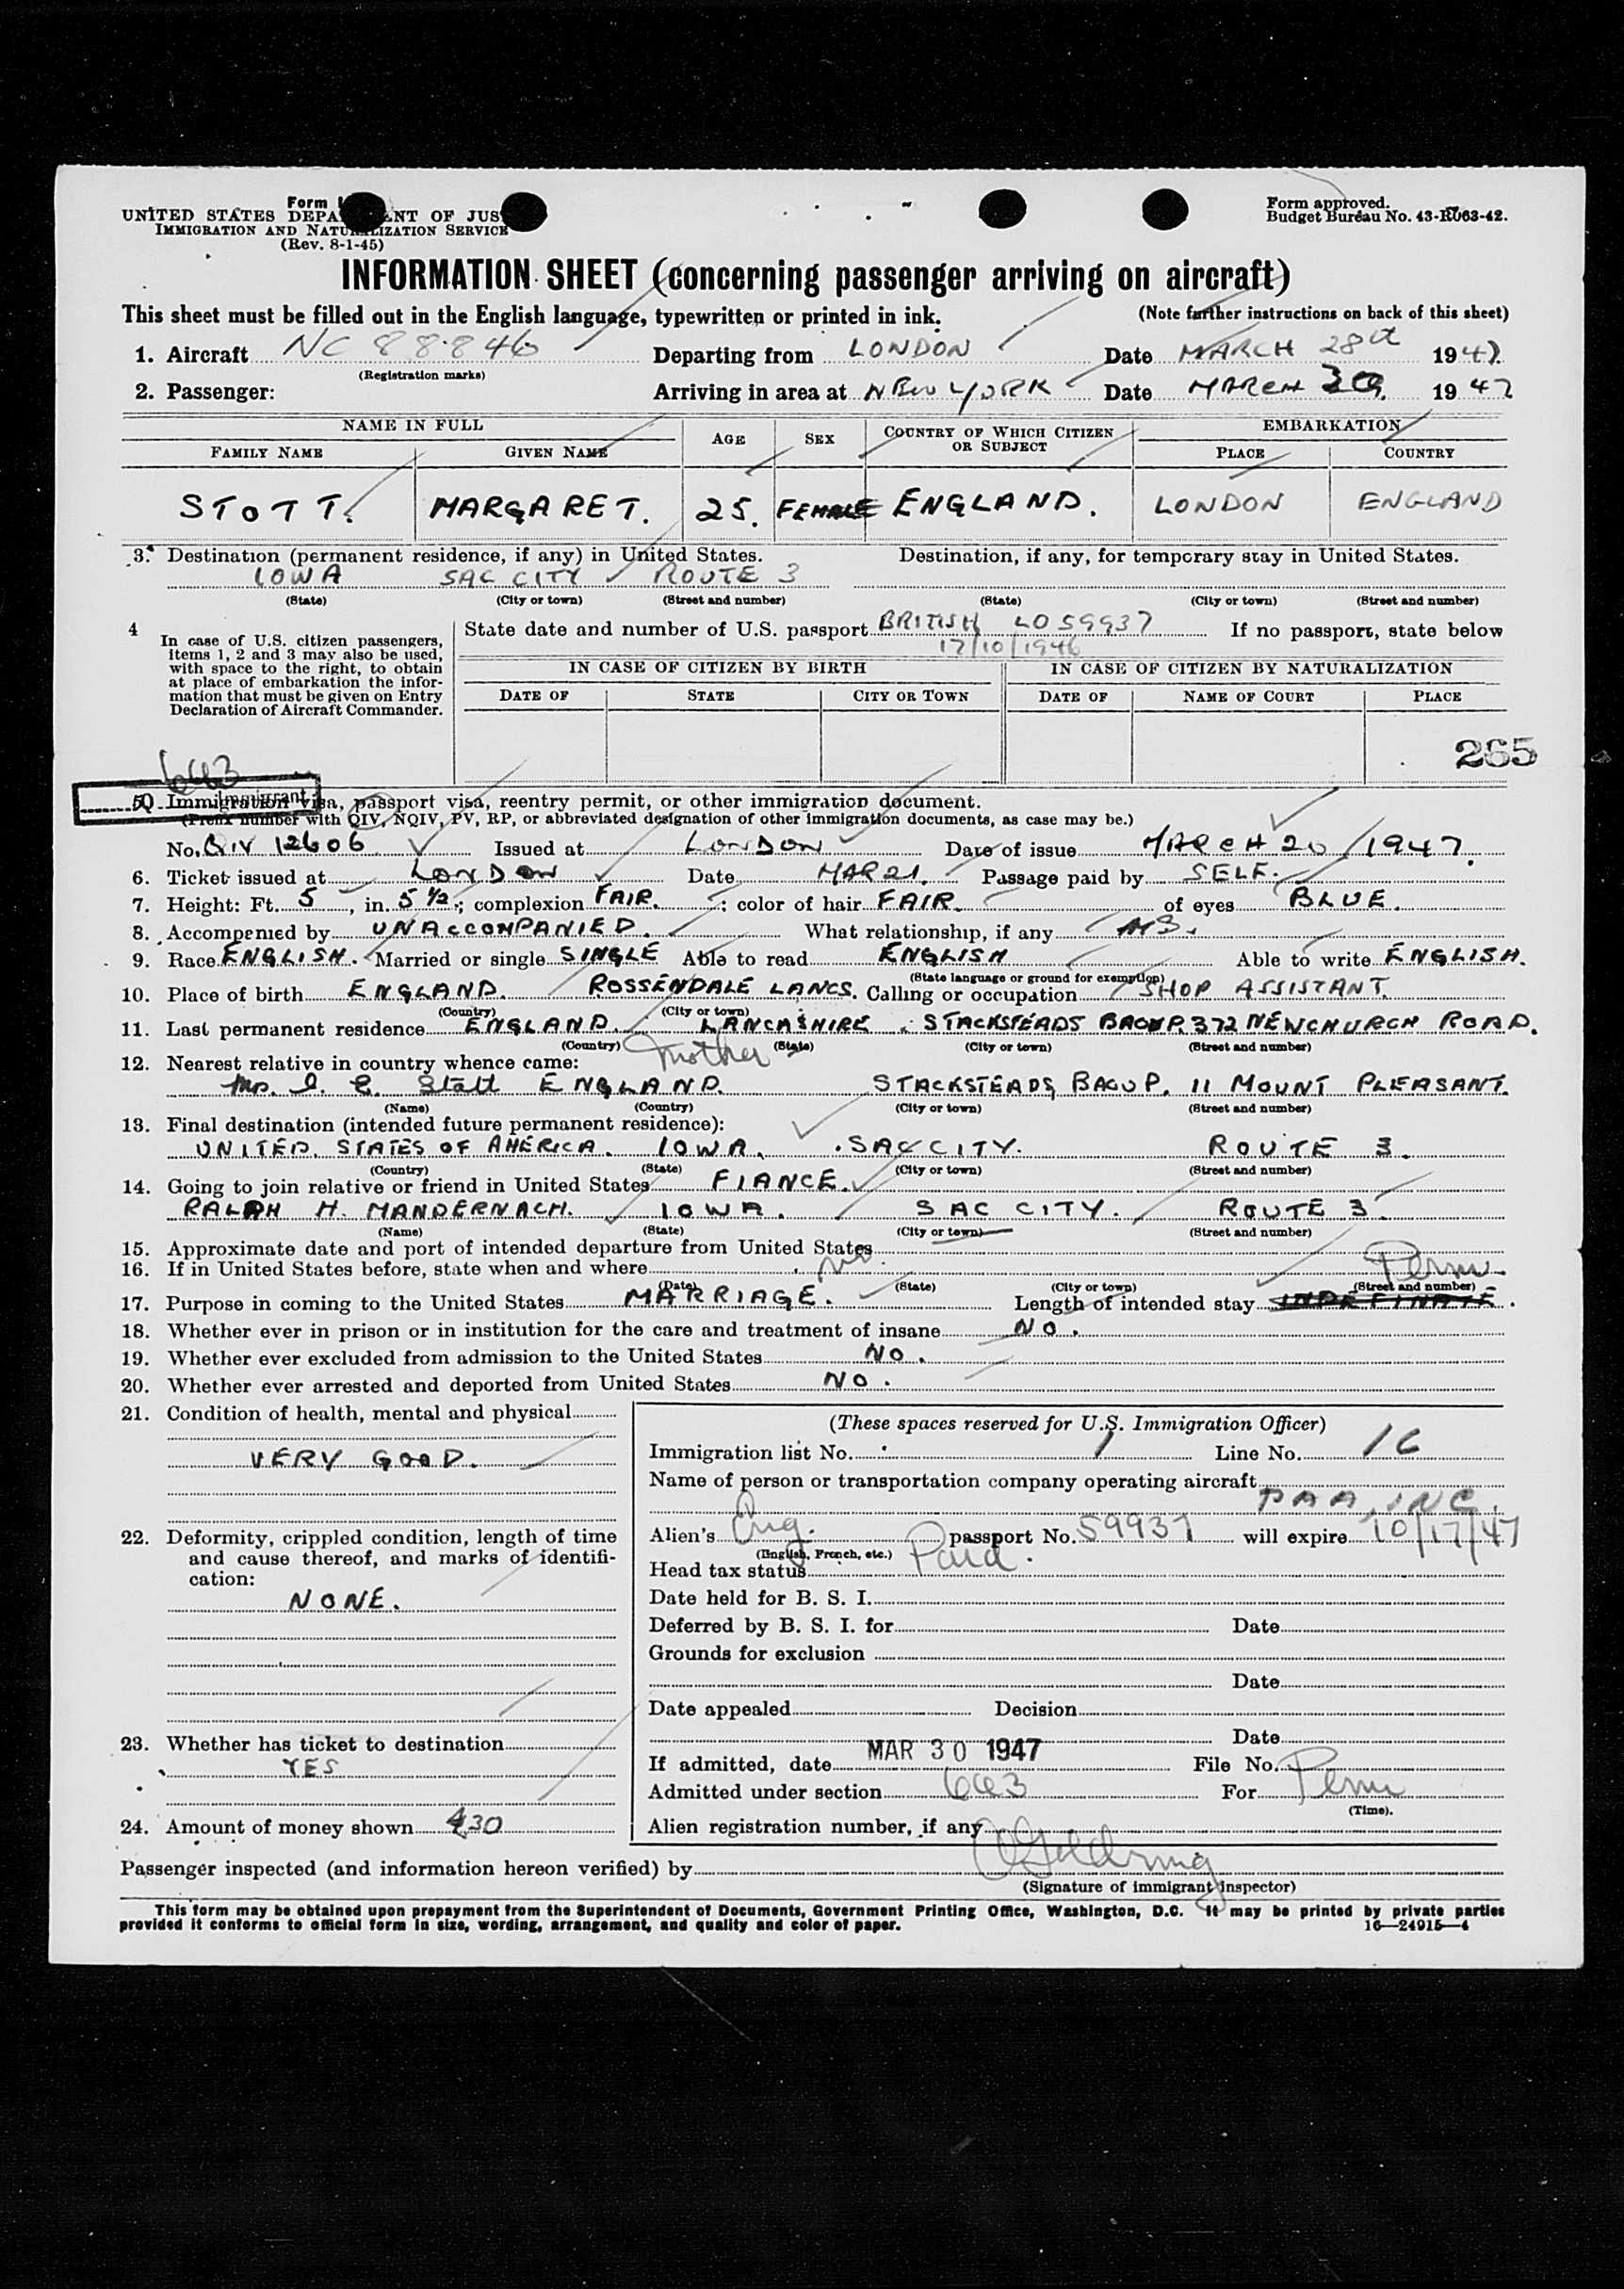 Form
UNITED STATES DEPARTMENT OF JUSTICE
IMMIGRATION AND NATURALIZATION SERVICE
(Rev. 8-1-45)
Form approved.
Budget Bureau No. 43-R063-42.
INFORMATION SHEET (concerning passenger arriving on aircraft)
This sheet must be filled out in the English language, typewritten or printed in ink. (Note further instructions on back of this sheet)
1. Aircraft NC 88846 Departing from LONDON Date MARCH 28th 1947
(Registration marks)
2. Passenger: Arriving in area at NEW YORK Date MARCH 30 1947
NAME IN FULL AGE SEX COUNTRY OF WHICH CITIZEN OR SUBJECT EMBARKATION
FAMILY NAME GIVEN NAME PLACE COUNTRY
STOTT. MARGARET. 25. FEMALE ENGLAND. LONDON ENGLAND
3. Destination (permanent residence, if any) in United States. Destination, if any, for temporary stay in United States.
IOWA SAC CITY ROUTE 3
(State) (City or town) (Street and number) (State) (City or town) (Street and number)
4 In case of U.S. citizen passengers, items 1, 2 and 3 may also be used, with space to the right, to obtain at place of embarkation the information that must be given on Entry Declaration of Aircraft Commander.
State date and number of U.S. passport BRITISH LO59937 If no passport, state below
17/10/1946
IN CASE OF CITIZEN BY BIRTH IN CASE OF CITIZEN BY NATURALIZATION
DATE OF STATE CITY OR TOWN DATE OF NAME OF COURT PLACE
265
663
Immigrant
5. Immigration visa, passport visa, reentry permit, or other immigration document.
(Prefix number with QIV, NQIV, PV, RP, or abbreviated designation of other immigration documents, as case may be.)
No. QIV 12606 Issued at LONDON Date of issue MARCH 20/1947.
6. Ticket issued at LONDON Date MAR 21. Passage paid by SELF.
7. Height: Ft. 5, in. 5 1/2; complexion FAIR.; color of hair FAIR. of eyes BLUE.
8. Accompanied by UNACCOMPANIED. What relationship, if any
9. Race ENGLISH. Married or single SINGLE Able to read ENGLISH Able to write ENGLISH.
(State language or ground for exemption)
10. Place of birth ENGLAND. ROSSENDALE LANCS. Calling or occupation SHOP ASSISTANT.
(Country) (City or town)
11. Last permanent residence ENGLAND. LANCASHIRE. STACKSTEADS BACUP. 372 NEWCHURCH ROAD.
(Country) (State) (City or town) (Street and number)
12. Nearest relative in country whence came: Mother
Mrs. I. E. Stott ENGLAND. STACKSTEADS, BACUP. 11 MOUNT PLEASANT.
(Name) (Country) (City or town) (Street and number)
13. Final destination (intended future permanent residence):
UNITED. STATES OF AMERICA. IOWA. SAC CITY. ROUTE 3.
(Country) (State) (City or town) (Street and number)
14. Going to join relative or friend in United States FIANCE.
RALPH H. MANDERNACH. IOWA. SAC CITY. ROUTE 3.
(Name) (State) (City or town) (Street and number)
15. Approximate date and port of intended departure from United States
16. If in United States before, state when and where no.
(Date) (State) (City or town) (Street and number)
Perm
17. Purpose in coming to the United States MARRIAGE. Length of intended stay INDEFINATE.
18. Whether ever in prison or in institution for the care and treatment of insane NO.
19. Whether ever excluded from admission to the United States NO.
20. Whether ever arrested and deported from United States NO.
21. Condition of health, mental and physical
VERY GOOD.
22. Deformity, crippled condition, length of time and cause thereof, and marks of identification:
NONE.
23. Whether has ticket to destination
YES
24. Amount of money shown 430
(These spaces reserved for U.S. Immigration Officer)
Immigration list No. 1 Line No. 16
Name of person or transportation company operating aircraft
PAA, INC.
Alien's Eng. passport No. 59937 will expire 10/17/47
(English, French, etc.)
Head tax status Paid.
Date held for B. S. I.
Deferred by B. S. I. for Date
Grounds for exclusion
Date
Date appealed Decision
Date
If admitted, date MAR 30 1947 File No.
Admitted under section 663 For Perm
(Time).
Alien registration number, if any
Passenger inspected (and information hereon verified) by
(Signature of immigrant inspector)
This form may be obtained upon prepayment from the Superintendent of Documents, Government Printing Office, Washington, D.C. It may be printed by private parties
provided it conforms to official form in size, wording, arrangement, and quality and color of paper. 16—24915-4